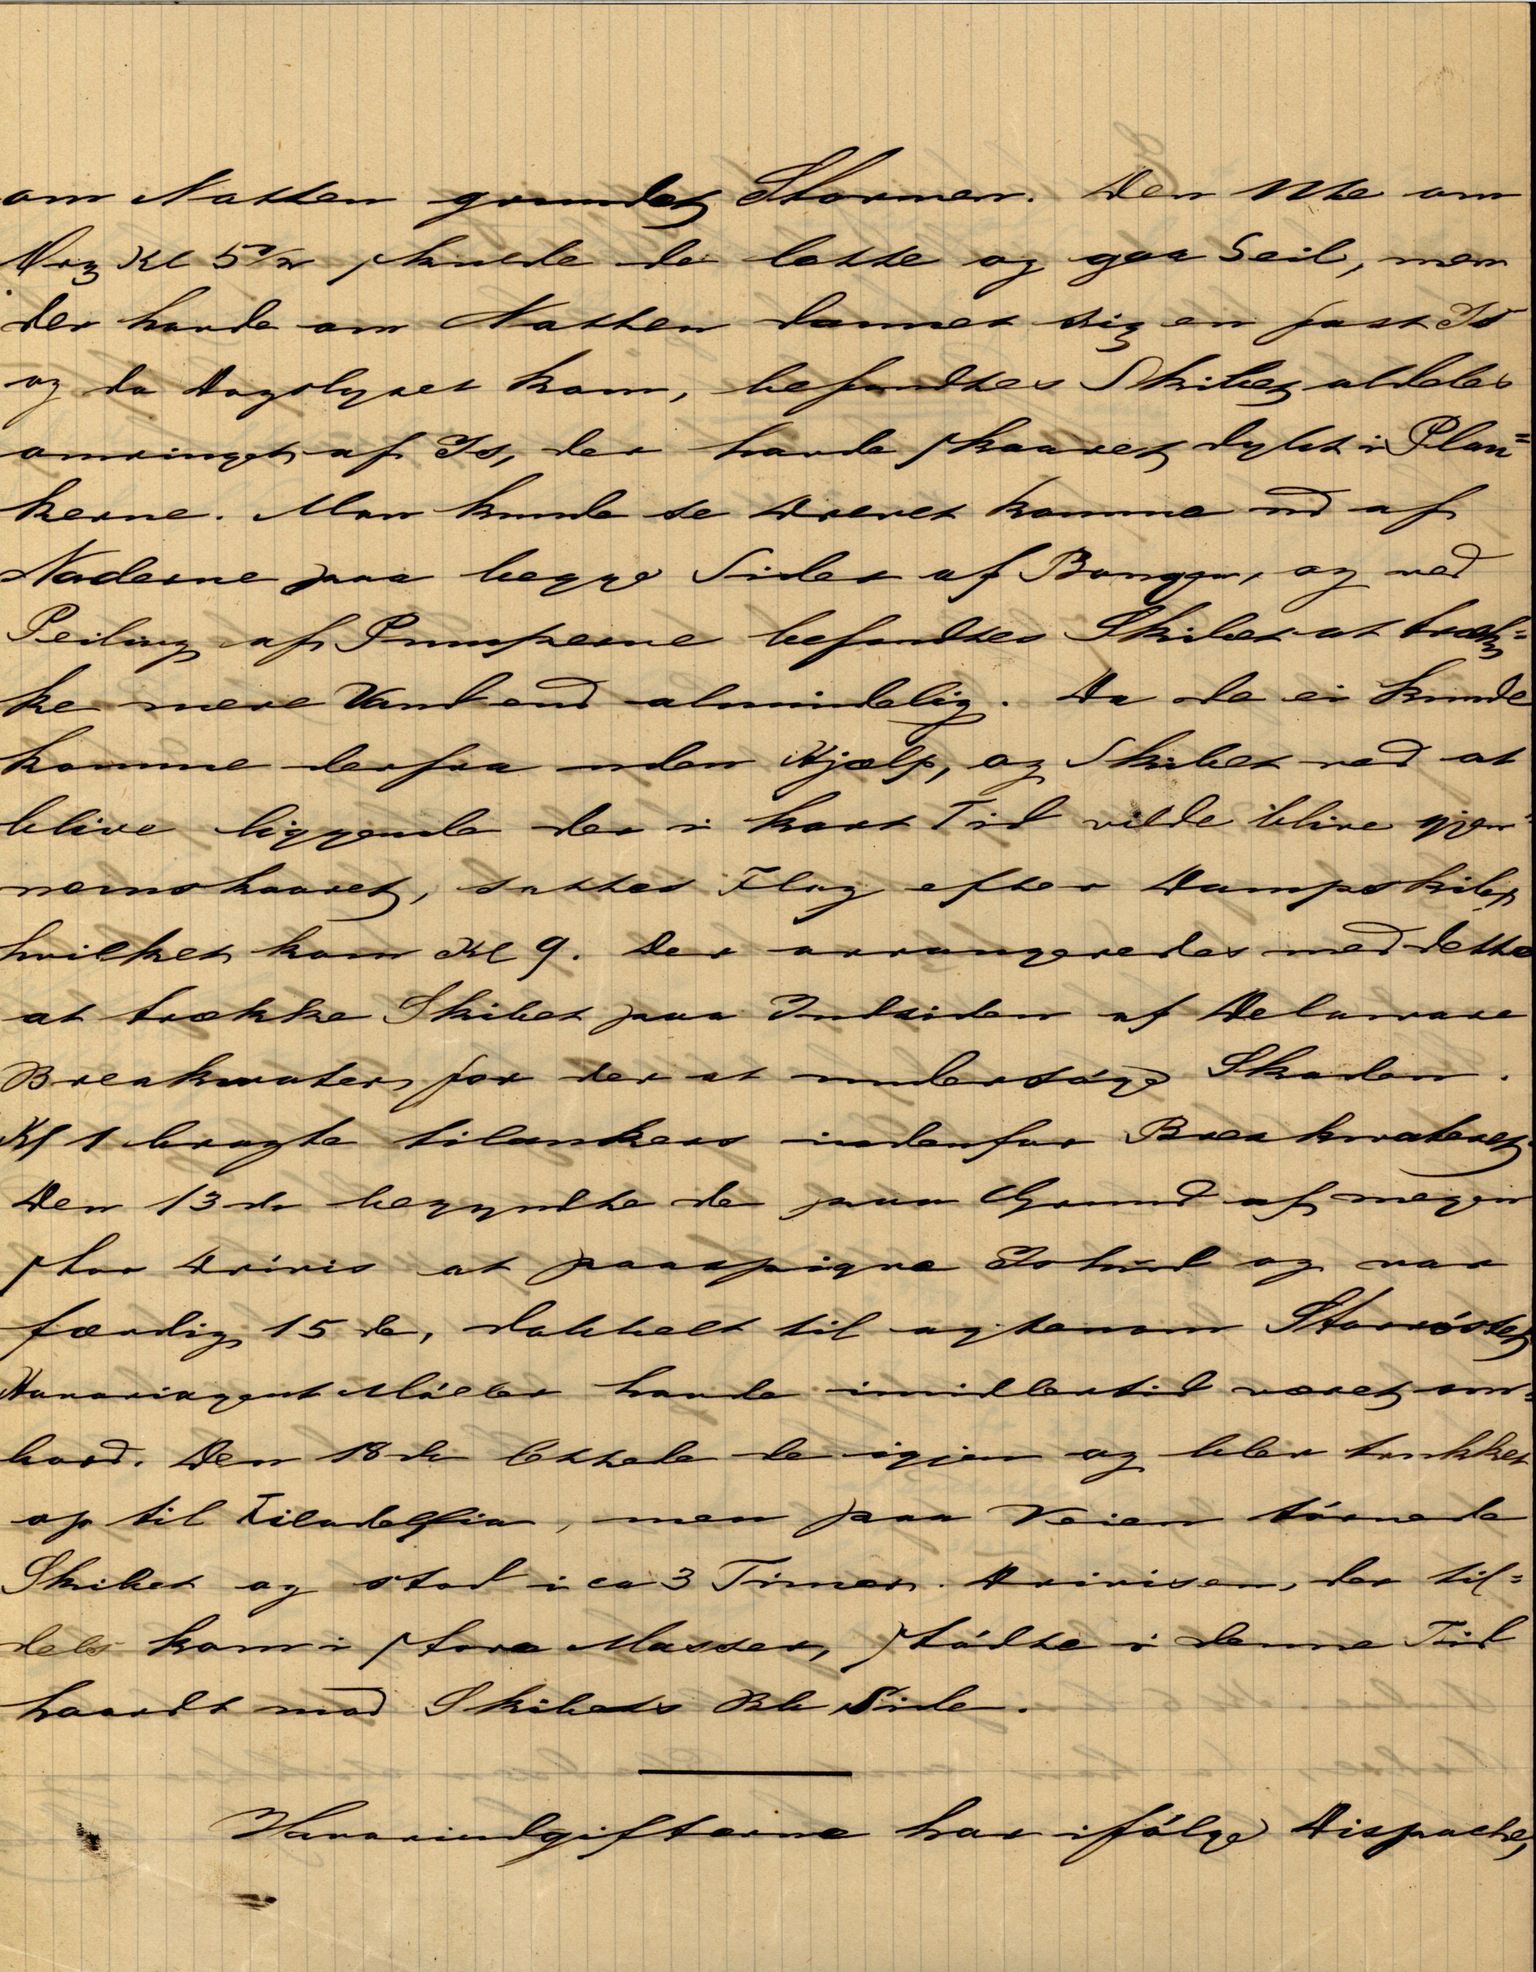 om Natten grundet Stormen. Den 11te om
Mrg Kl 5½ skulde de lette og gaa Seil, men
der havde om Natten dannet sig en fast Is
og da Dagslyset kom, befandtes Skibet aldeles
omringet af Is, der havde skaaret dybt i Plan=
kerne. Man kunde se Drevet komme ud af
Naderne paa begge Sider af Bougen, og ved
Peiling af Pumperne befandtes Skibet at træk=
ke mere Vand end almindelig. Da de ei kunde
komme derfra uden Hjælp, og Skibet ved at
blive liggende der i kort Tid vilde blive gjen=
nemskaaret, sattes Flag efter Dampskib,
hvilket kom Kl 9. Der arrangeredes med dette
at trække Skibet paa Indsiden af Delaware
Breakwater for der at undersøge Skaden.
Kl 1 bragte tilankers indenfor Breakwateret.
Den 13de begyndte de paa Grund af megen
stor Drivis at paaspigre Ishud og var
færdig 15de, dobbelt til agtenom Storrøstet
Havariagent Møller havde imidlertid været om=
bord. Den 18de lettede de igjen og blev trukket
op til Filadelfia, men paa Veien tørnede
Skibet og stod i ca 3 Timer. Drivisen, der til=
dels kom i store Masser, stødte i denne Tid
haardt mod Skibets Bb Side.
Havariudgifterne har ifølge Dispache,